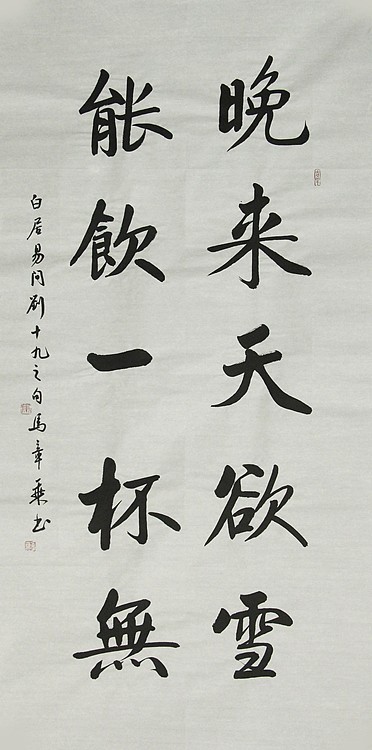 晚来天欲雪
能飲一杯無
白居易问劉十九之句馬章乘书